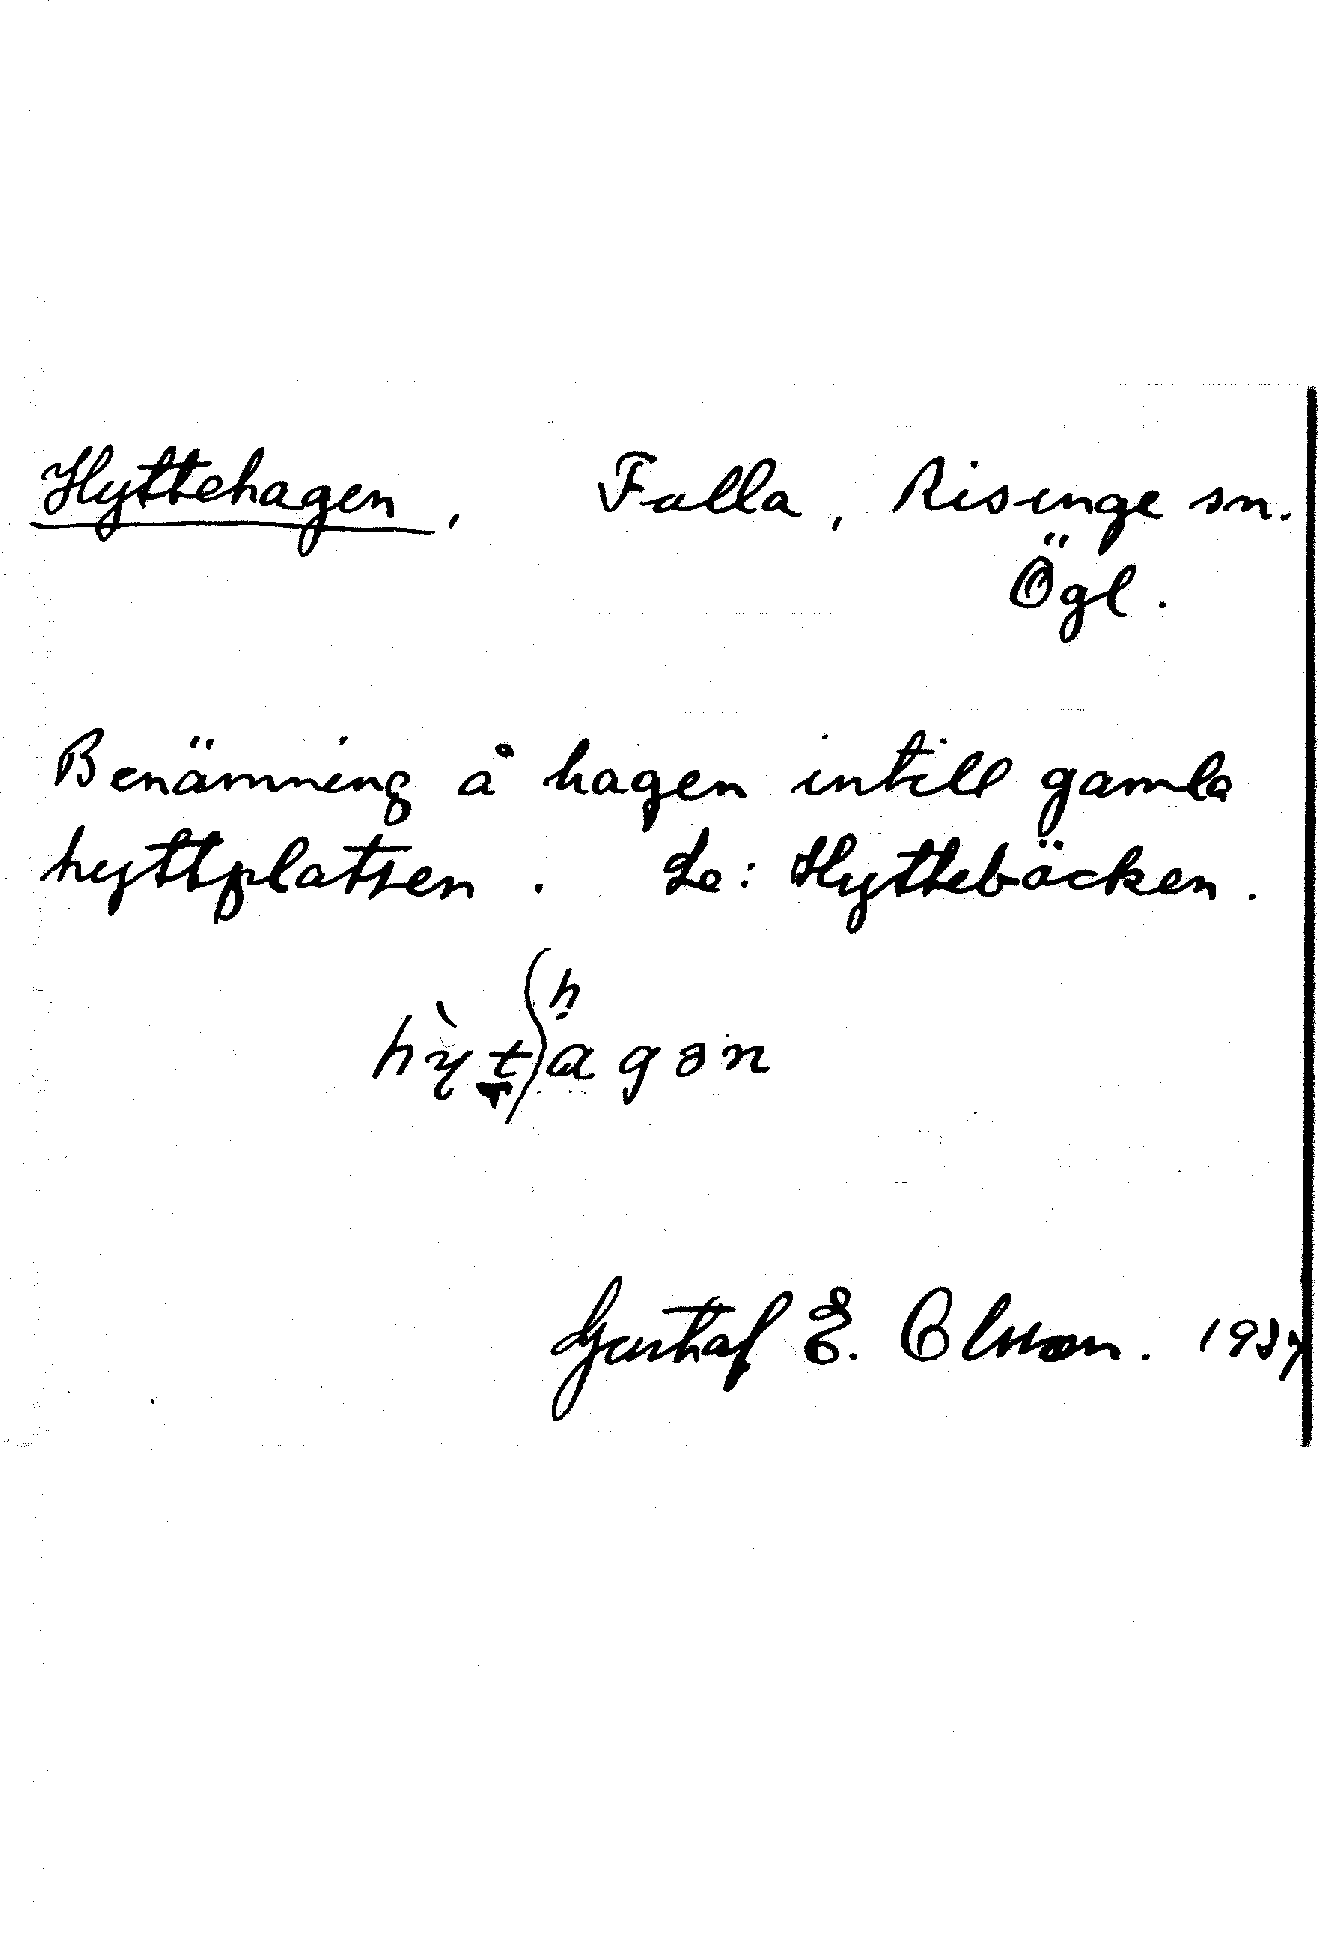 Hyttehagen, Falla, Risinge sn.
Ögl.
Benämning å hagen intill gamla
hyttplatsen. Se: Hyttebäcken.
Gustaf E. Olsson.